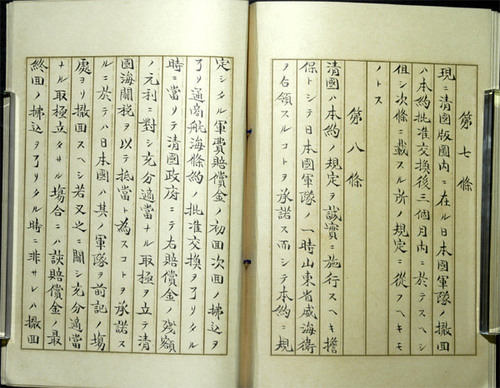 第七條
現ニ清國版圖内ニ在ル日本國軍隊ノ撤回
ハ本約批准交換後三個月内ニ於テスヘシ
但シ次條ニ載スル所ノ規定ニ從フヘキモ
ノトス
第八條
清國ハ本約ノ規定ヲ誠實ニ施行スヘキ擔
保トシテ日本國軍隊ノ一時山東省威海衛
ヲ占領スルコトヲ承諾ス而シテ本約ニ規
定シタル軍費賠償金ノ初回次回ノ拂込ヲ
了リ通商航海條約ノ批准交換ヲ了リタル
時ニ當リテ清國政府ニテ右賠償金ノ殘額
ノ元利ニ對シ充分適當ナル取極ヲ立テ清
國海關税ヲ以テ抵當ト為スコトヲ承諾ス
ルニ於テハ日本國ハ其ノ軍隊ヲ前記ノ塲
處ヨリ撤回スヘシ若又之ニ關シ充分適當
ナル取極立タサル塲合ニハ該賠償金ノ最
終回ノ拂込ヲ了リタル時ニ非サレハ撤回